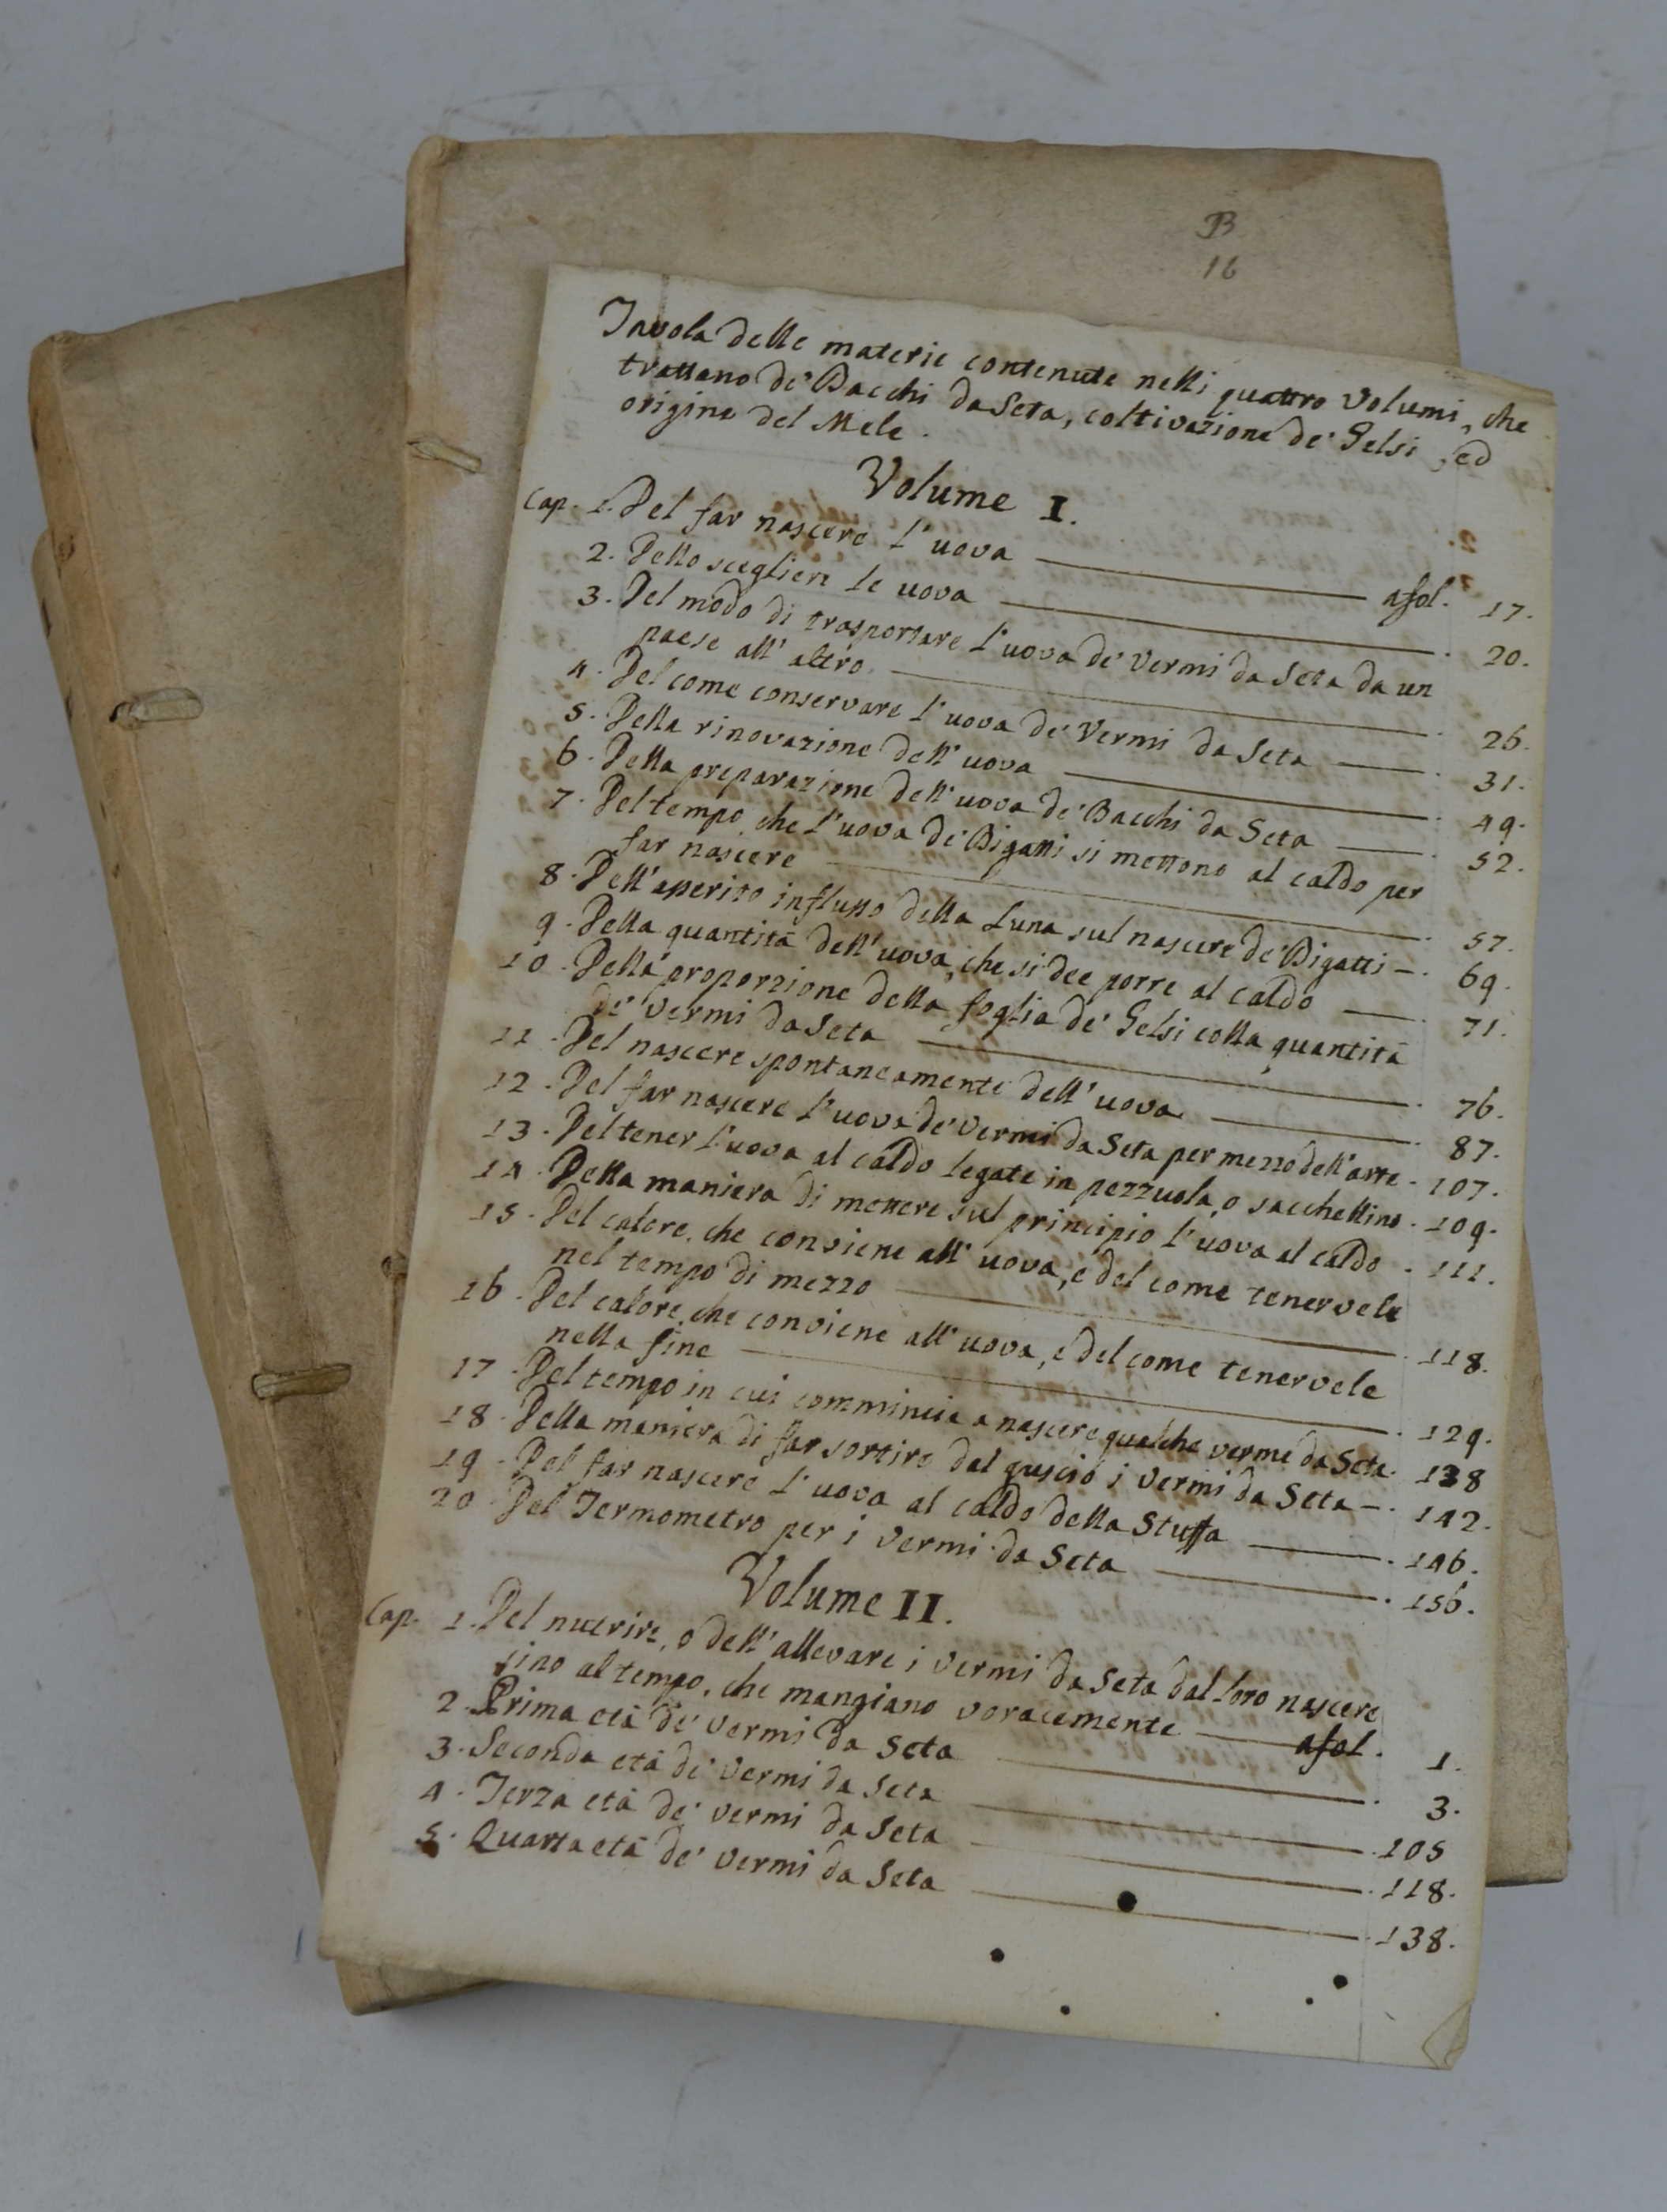 B
16
Tavola delle materie contenute nelli quattro Volumi, che
trattano de' Bacchi da Seta, coltivazione de' Gelsi, ed
origine del Mele.
Volume I.
Cap. 1. Del far nascere l'uova — afol. 17.
2. Dello scegliere le uova — 20.
3. Del modo di trasportare l'uova de' Vermi da Seta da un
paese all'altro — 26.
4. Del come conservare l'uova de' Vermi da Seta — 31.
5. Della rinovazione dell'uova — 49.
6. Della preparazione dell'uova de' Bacchi da Seta — 52.
7. Del tempo, che l'uova de' Bigatti si mettono al caldo per
far nascere — 57.
8. Dell'asserito influsso della Luna sul nascere de' Bigatti — 69.
9. Della quantità dell'uova, che si dee porre al caldo — 71.
10. Della proporzione della foglia de' Gelsi colla quantità
de' Vermi da Seta — 76.
11. Del nascere spontaneamente dell'uova — 87.
12. Del far nascere l'uova de' Vermi da Seta per mezzo dell'arte. 107.
13. Del tener l'uova al caldo legate in pezzuola, o sacchettino. 109.
14. Della maniera di mettere sul principio l'uova al caldo. 111.
15. Del calore, che conviene all'uova, e del come tenervele
nel tempo di mezzo — 118.
16. Del calore, che conviene all'uova, e del come tenervele
nella fine — 129.
17. Del tempo in cui commincia a nascere qualche verme da Seta. 138
18. Della maniera di far sortire dal guscio i Vermi da Seta — 142.
19. Del far nascere l'uova al caldo della Stuffa — 146.
20. Del Termometro per i Vermi da Seta — 156.
Volume II.
Cap. 1. Del nutrire, o dell'allevare i Vermi da Seta dal loro nascere
sino al tempo, che mangiano voracemente — afol. 1.
2. Prima età de' Vermi da Seta — 3.
3. Seconda età de' Vermi da Seta — 105
4. Terza età de' Vermi da Seta — 118.
5. Quarta età de' Vermi da Seta — 138.